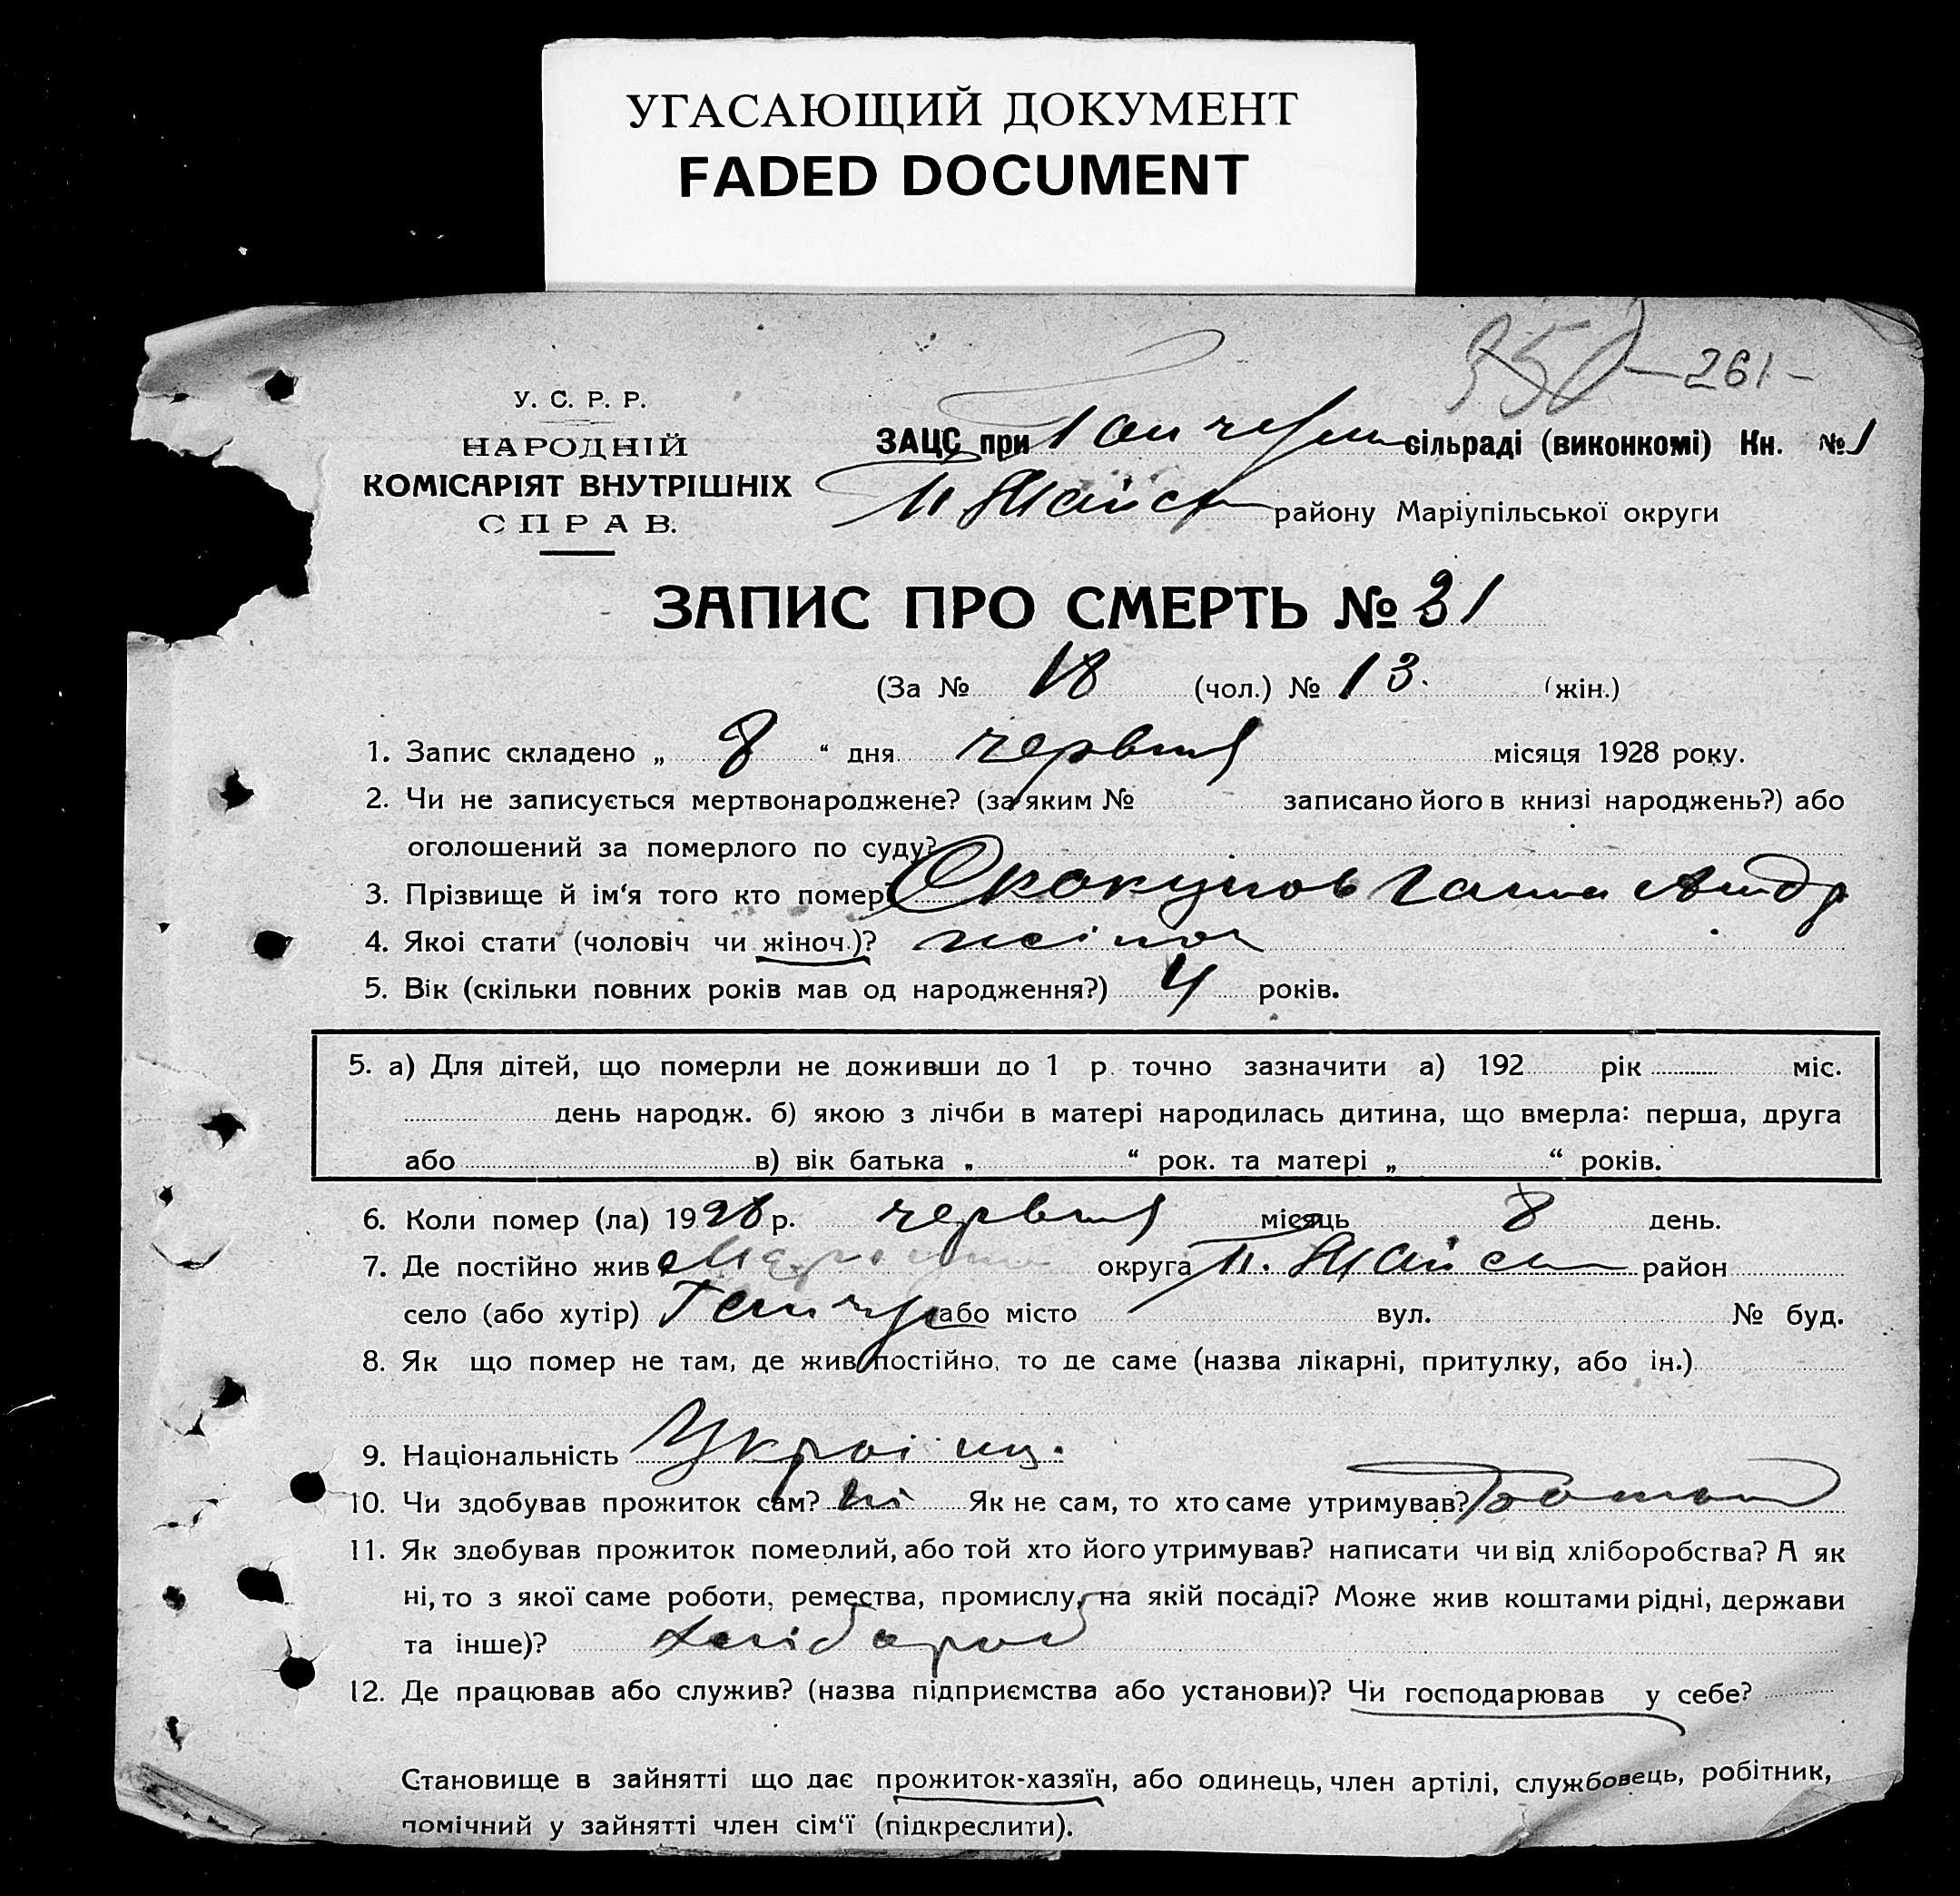 УГАСАЮЩИЙ ДОКУМЕНТ
FADED DOCUMENT
350 - 261 -
У. С. Р. Р.
НАРОДНІЙ
КОМІСАРІЯТ ВНУТРІШНІХ
СПРАВ.
ЗАЦС при сільраді (виконкомі) Кн. № 1
району Маріупільської округи
ЗАПИС ПРО СМЕРТЬ № 31
(За № 18 (чол.) № 13. (жін.)
1. Запис складено „ 8 “ дня червня місяця 1928 року.
2. Чи не записується мертвонароджене? (за яким № записано його в книзі народжень?) або
оголошений за померлого по суду?
3. Прізвище й ім‘я того кто помер Андр
4. Якоі стати (чоловіч чи жіноч.)? жіноч
5. Вік (скільки повних років мав од народження?) 4 років.
5. а) Для дітей, що померли не доживши до 1 р. точно зазначити а) 192 рік міс.
день народж. б) якою з лічби в матері народилась дитина, що вмерла: перша, друга
або в) вік батька „ “ рок. та матері „ “ років.
6. Коли помер (ла) 1928 р. червня місяць 8 день.
7. Де постійно жив округа район
село (або хутір) або місто вул. № буд.
8. Як що помер не там, де жив постійно, то де саме (назва лікарні, притулку, або ін.)
9. Національність Україн.
10. Чи здобував прожиток сам? ні Як не сам, то хто саме утримував? Батьки
11. Як здобував прожиток померлий, або той хто його утримував? написати чи від хліборобства? А як
ні, то з якої саме роботи, ремества, промислу, на якій посаді? Може жив коштами рідні, держави
та інше)? хлібороб
12. Де працював або служив? (назва підприємства або установи)? Чи господарював у себе?
Становище в зайнятті що дає прожиток-хазяїн, або одинець, член артілі, службовець, робітник,
помічний у зайнятті член сім‘ї (підкреслити).